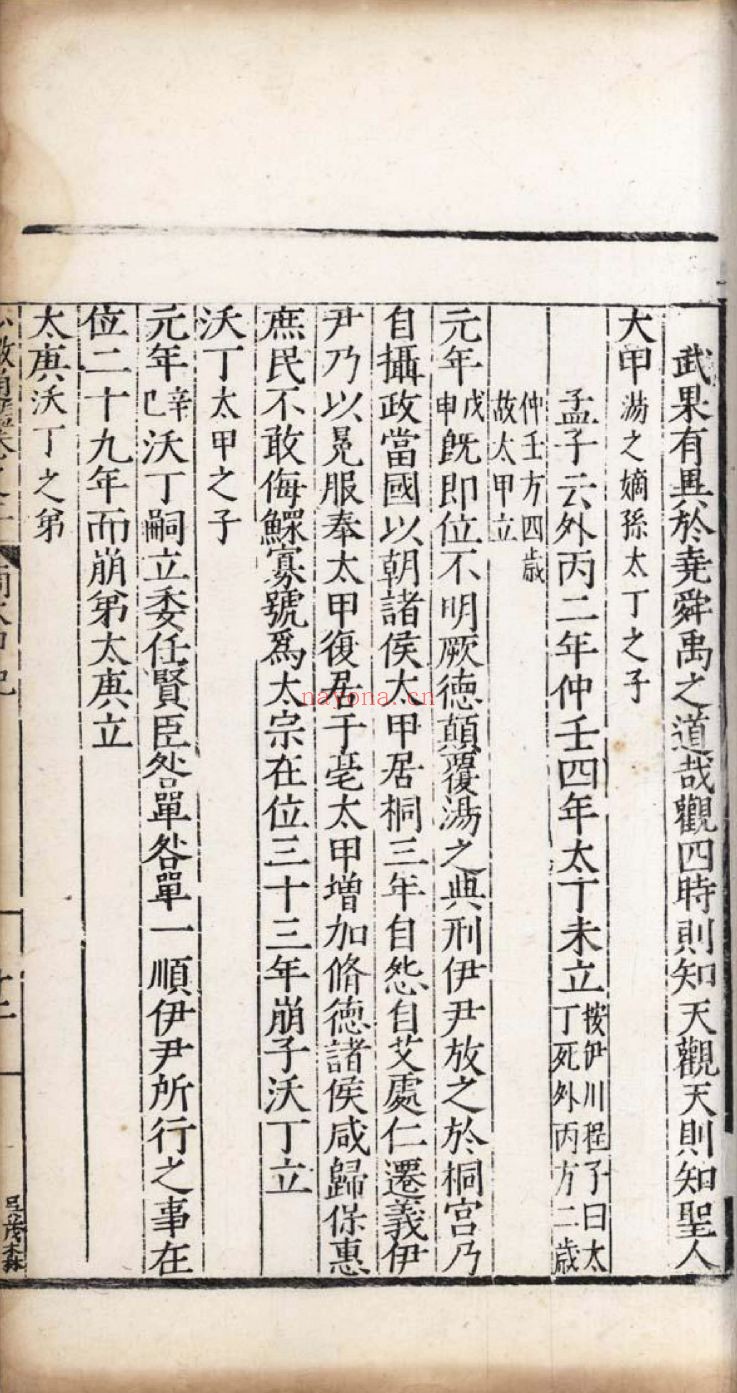 武果有異於堯舜禹之道哉觀四時則知天觀天則知聖人
大甲湯之嫡孫太丁之子
孟子云外丙二年仲壬四年太丁未立按伊川程子曰太丁死外丙方二歲
仲壬方四歲故太甲立
元年戊申既即位不明厥德顛覆湯之典刑伊尹放之於桐宮乃
自攝政當國以朝諸侯大甲居桐三年自怨自艾處仁遷義伊
尹乃以冕服奉太甲復居于亳太甲增加脩德諸侯咸歸保惠
庶民不敢侮鰥寡號爲太宗在位三十三年崩子沃丁立
沃丁太甲之子
元年辛巳沃丁嗣立委任賢臣咎單咎單一順伊尹所行之事在
位二十九年而崩弟太庚立
太庚沃丁之弟
nayona.cn